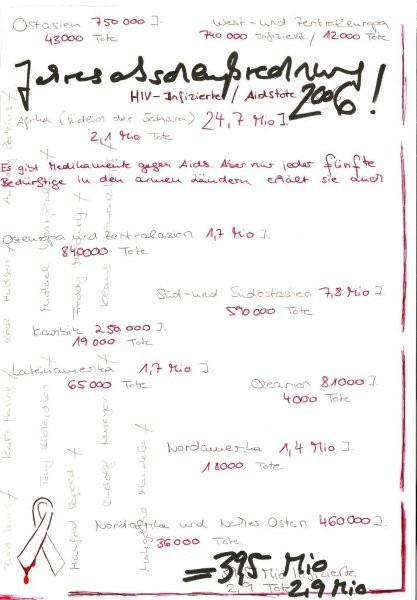 Ostasien 750 000 I.
43000 Tote
West- und Zentraleuropa
740 000 Infizierte / 12000 Tote
Jahresabschlußrechnung
2006!
HIV-Infizierte / Aidstote
Afrika (südlich der Sahara) 24,7 Mio I.
2,1 Mio Tote
Es gibt Medikamente gegen Aids. Aber nur jeder fünfte
Bedürftige in den armen Ländern erhält sie auch
Osteuropa und Zentralasien 1,7 Mio I.
84 0000 Tote
Süd- und Südostasien 7,8 Mio I.
590 000 Tote
Karibik 250 000 I.
19 000 Tote
Lateinamerika 1,7 Mio I.
65 000 Tote
Ozeanien 81000 I.
4000 Tote
Nordamerika 1,4 Mio I.
18000 Tote
Nordafrika und Nahes Osten 460 000 I.
36 000 Tote
= 39,5 Mio
Mio Infizierte
2,9 Tote
2,9 Mio
Rock Hudson
Keith Haring
Michael
Freddy Mercury
Klaus Schwarzkopf
Rudolf Nurejew
Makgatho Mandela